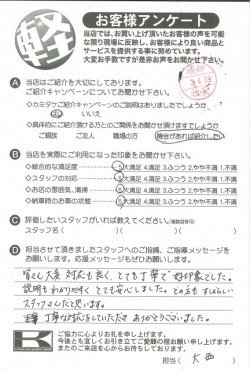 軽
お客様アンケート
当店では、お買い上げ頂いたお客様の声を可能
な限り現場に反映し、お客様により良い商品と
サービスを提供する事に努めています。
大変お手数ですが是非お声をお聞かせ下さい。
A 当店はご紹介を大切にしております。
ご紹介キャンペーンについてお聞かせ下さい。
・カミタケご紹介キャンペーンのご説明はありましたでしょうか
はい いいえ
・具体的にご紹介頂ける方とのご関係をお聞かせ頂けますでしょうか
ご親族 ご友人 職場の方 機会があれば紹介したい
B 当店を実際にご利用になった印象をお聞かせ下さい。
・総合的な満足度 5大満足 4.満足 3.ふつう 2.やや不満 1.不満
・スタッフの対応 5大満足 4.満足 3.ふつう 2.やや不満 1.不満
・お店の雰囲気、清掃 5大満足 4.満足 3.ふつう 2.やや不満 1.不満
・納車時のお車の状態 5大満足 4.満足 3.ふつう 2.やや不満 1.不満
C 評価したいスタッフがいれば教えてください。(複数回答可)
スタッフ名( )( )( )
D 担当させて頂きましたスタッフへのご指摘、ご指導メッセージを
お願いします。応援メッセージもぜひお願いします！
皆さん大変対応も良く、とても丁寧で好印象でした。
説明もわかりやすくとても安心しました。どの方もすばらしい
スタッフさんだと思います。
丁寧な対応をしていただきありがとうございました。
ご協力に心よりお礼を申し上げます。
今後とも宜しくお引き立てご愛顧の程お願い申し上げます。
またのご来店を心からお待ちしております。
担当( 大西 )